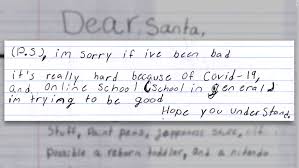 Dear Santa,
(P.S), im sorry if ive been bad
it's really hard because of Covid-19,
and online school (School in general
im trying to be good
Hope you understand.
Stuff, Paint pens,
possible a reborn toddler, and a